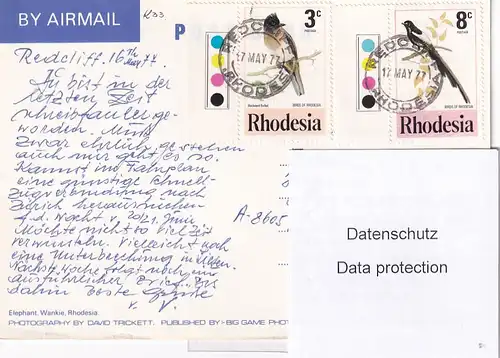 BY AIRMAIL
K33
P
3c
Rhodesia
BIRDS OF RHODESIA
8c
Rhodesia
BIRDS OF RHODESIA
REDCLIFF
17 MAY 77
RHODESIA
REDCLIFF
17 MAY 77
RHODESIA
Redcliff. 16Th May 77
Du bist in der
letzten Zeit
schreibfauler ge-
worden. Muß
zwar ehrlich gestehen
auch mir geht es so.
Kannst im Fahrplan
eine günstige Schnell-
zugverbindung nach
Zürich heraussuchen
Nacht v. 20/21. Juni
Möchte nicht so viel Zeit
Vielleicht noch
eine Unterbrechung in
Nächste Woche folgt noch ein
ausführlicher Brief. Bis
dahin beste Grüße
V.
A-8605
Datenschutz
Data protection
Elephant, Wankie, Rhodesia.
PHOTOGRAPHY BY DAVID TRICKETT. PUBLISHED BY:- BIG GAME PHOT